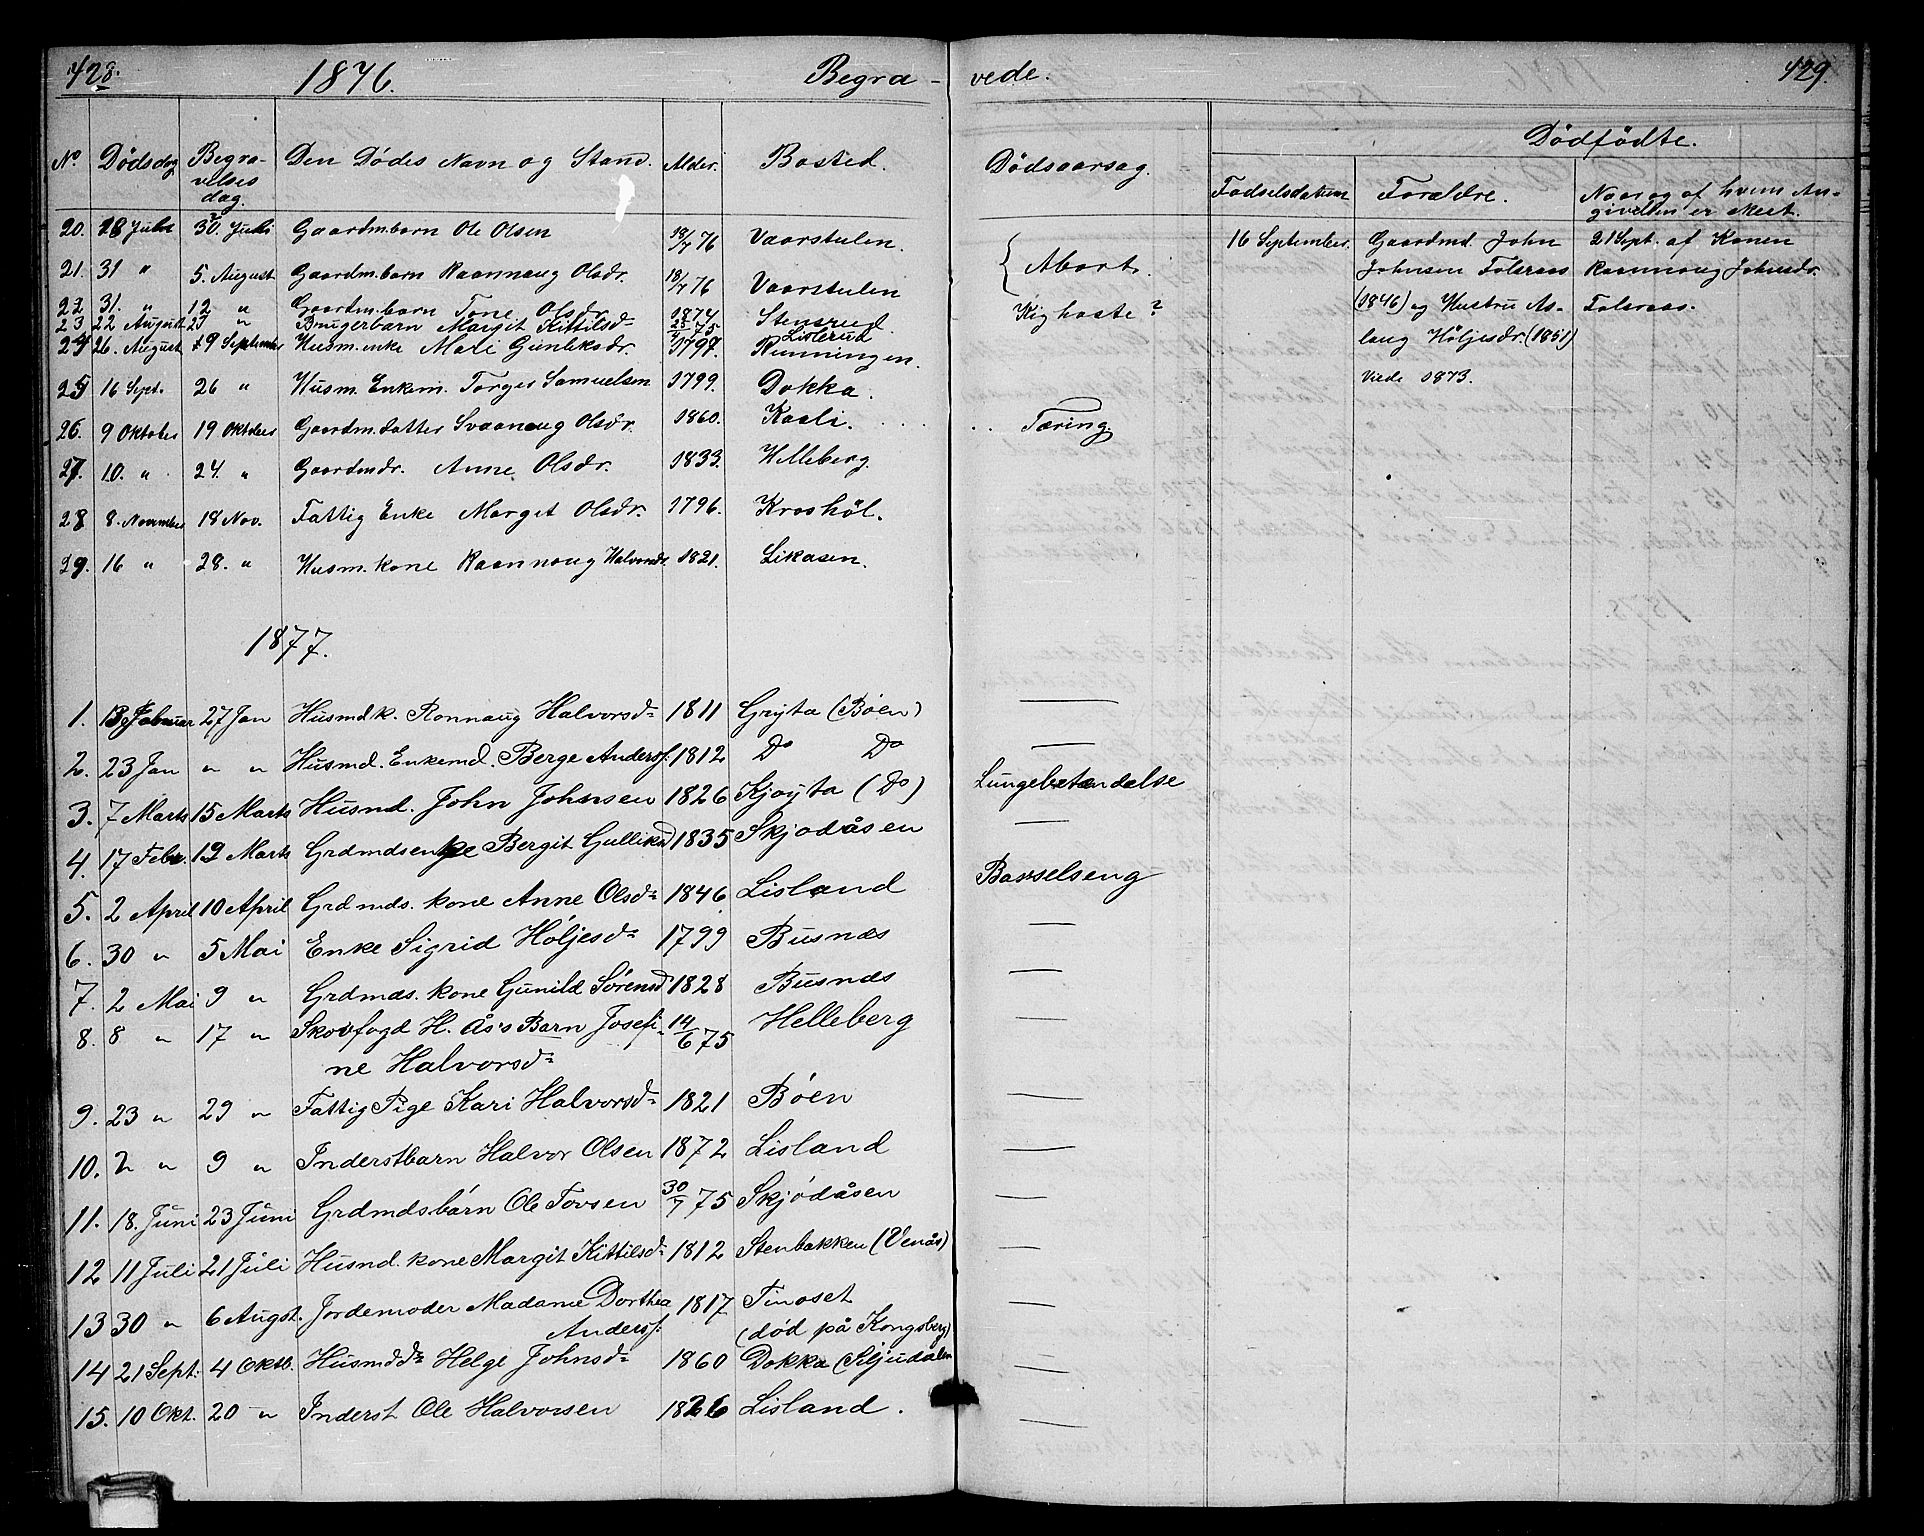 428.
1876.
Begra-
vede.
429.
No
Dödsdag
Begravelsesdag.
Den Dødes Navn og Stand.
Alder.
Bosted.
Dödsaarsag.
Dödfödte.
Fødselsdatum
Forældre.
Naar og af hvem Angivelsen er skeet.
20. 18 Juli 30. Juli Gaardm.barn Ole Olsen 18/7 76 Vaarstulen.
21. 31 " 5. August Gaardm.barn Raannaug Olsdr. 18/7 76 Vaarstulen { Abort.
22 31. " 12 " Gaardm.barn Tone Olsdr. 1874 Stensrud. Kighoste ?
23 22 August 27 " Brugerbarn Margit Kittilsd 75 Listerud
24 26. August 19 September Husm.enke Mari Gunleksdr. 1797. Runningen.
25 16 Sept. 26 " Husm. Enkem. Torger Samuelsen 1799. Dokka.
26. 9 Oktober 19 Oktober Gaardm.datter Svaanaug Olsdr. 1860. Kasli. Tæring.
27. 10. " 24. " Gaardmdr. Anne Olsdr. 1833. Helleberg.
28 8. November 18 Nov. Fattig Enke Margit Olsdr. 1796. Kroshöl.
29. 16 " 28. " Husm.kone Raannaug Halvorsdr. 1821. Likasen.
16 September. Gaardmd. John 21 Sept. af Konen
Johnsen Folsraas Raannaug Johnsdr.
(1846) og Hustru As- Folsraas.
laug Höljesdr. (1851)
Viede 1873.
1877.
1. 13 Januar 27 Jan Husmdk. Ronnaug Halvorsd 1811 Gryta (Bøen) —
2. 23 Jan " " Husmd. Enkemd. Berge Anders. 1812 Do Do —
3. 7 Marts 15 Marts Husmd. John Johnsen 1826 Kjøyta (Do) Lungebetændelse
4. 17 Febr. 12 Marts Grdmdsenke Bergit Gulliksd 1835 Skjodåsen —
5. 2 April 10 April Grdmds. kone Anne Olsd 1846 Lisland Barselseng
6. 30 " 5 Mai Enke Sigrid Høljesd 1799 Busnæs —
7. 2 Mai 9 " Grdmds. kone Gunild Sørensd 1828 Busnæs —
8. 8 " 17 " Skovfogd H. Ås's Barn Josefi- 14/6 75 Helleberg —
ne Halvorsd
9. 23 " 29 " Fattig Pige Kari Halvorsd 1821 Bøen —
10. 2 " 9 " Inderstbarn Halvor Olsen 1872 Lisland —
11. 18. Juni 23 Juni Grdmdsbarn Ole Torsen 30/7 75 Skjødåsen —
12 11 Juli 21 Juli Husmd. kone Margit Kittilsd 1812 Stenbakken (Venås) —
13 30 " 6 Augst. Jordemoder Madame Dorthea 1817 Tinoset —
Anders. (død på Kongsberg)
14 21 Sept. 4 Oktb. Husmdd Helge Johnsd 1860 Dokka (Sljudalen —
15. 10 Okt. 20 " Inderst Ole Halvorsen 1826 Lisland. —